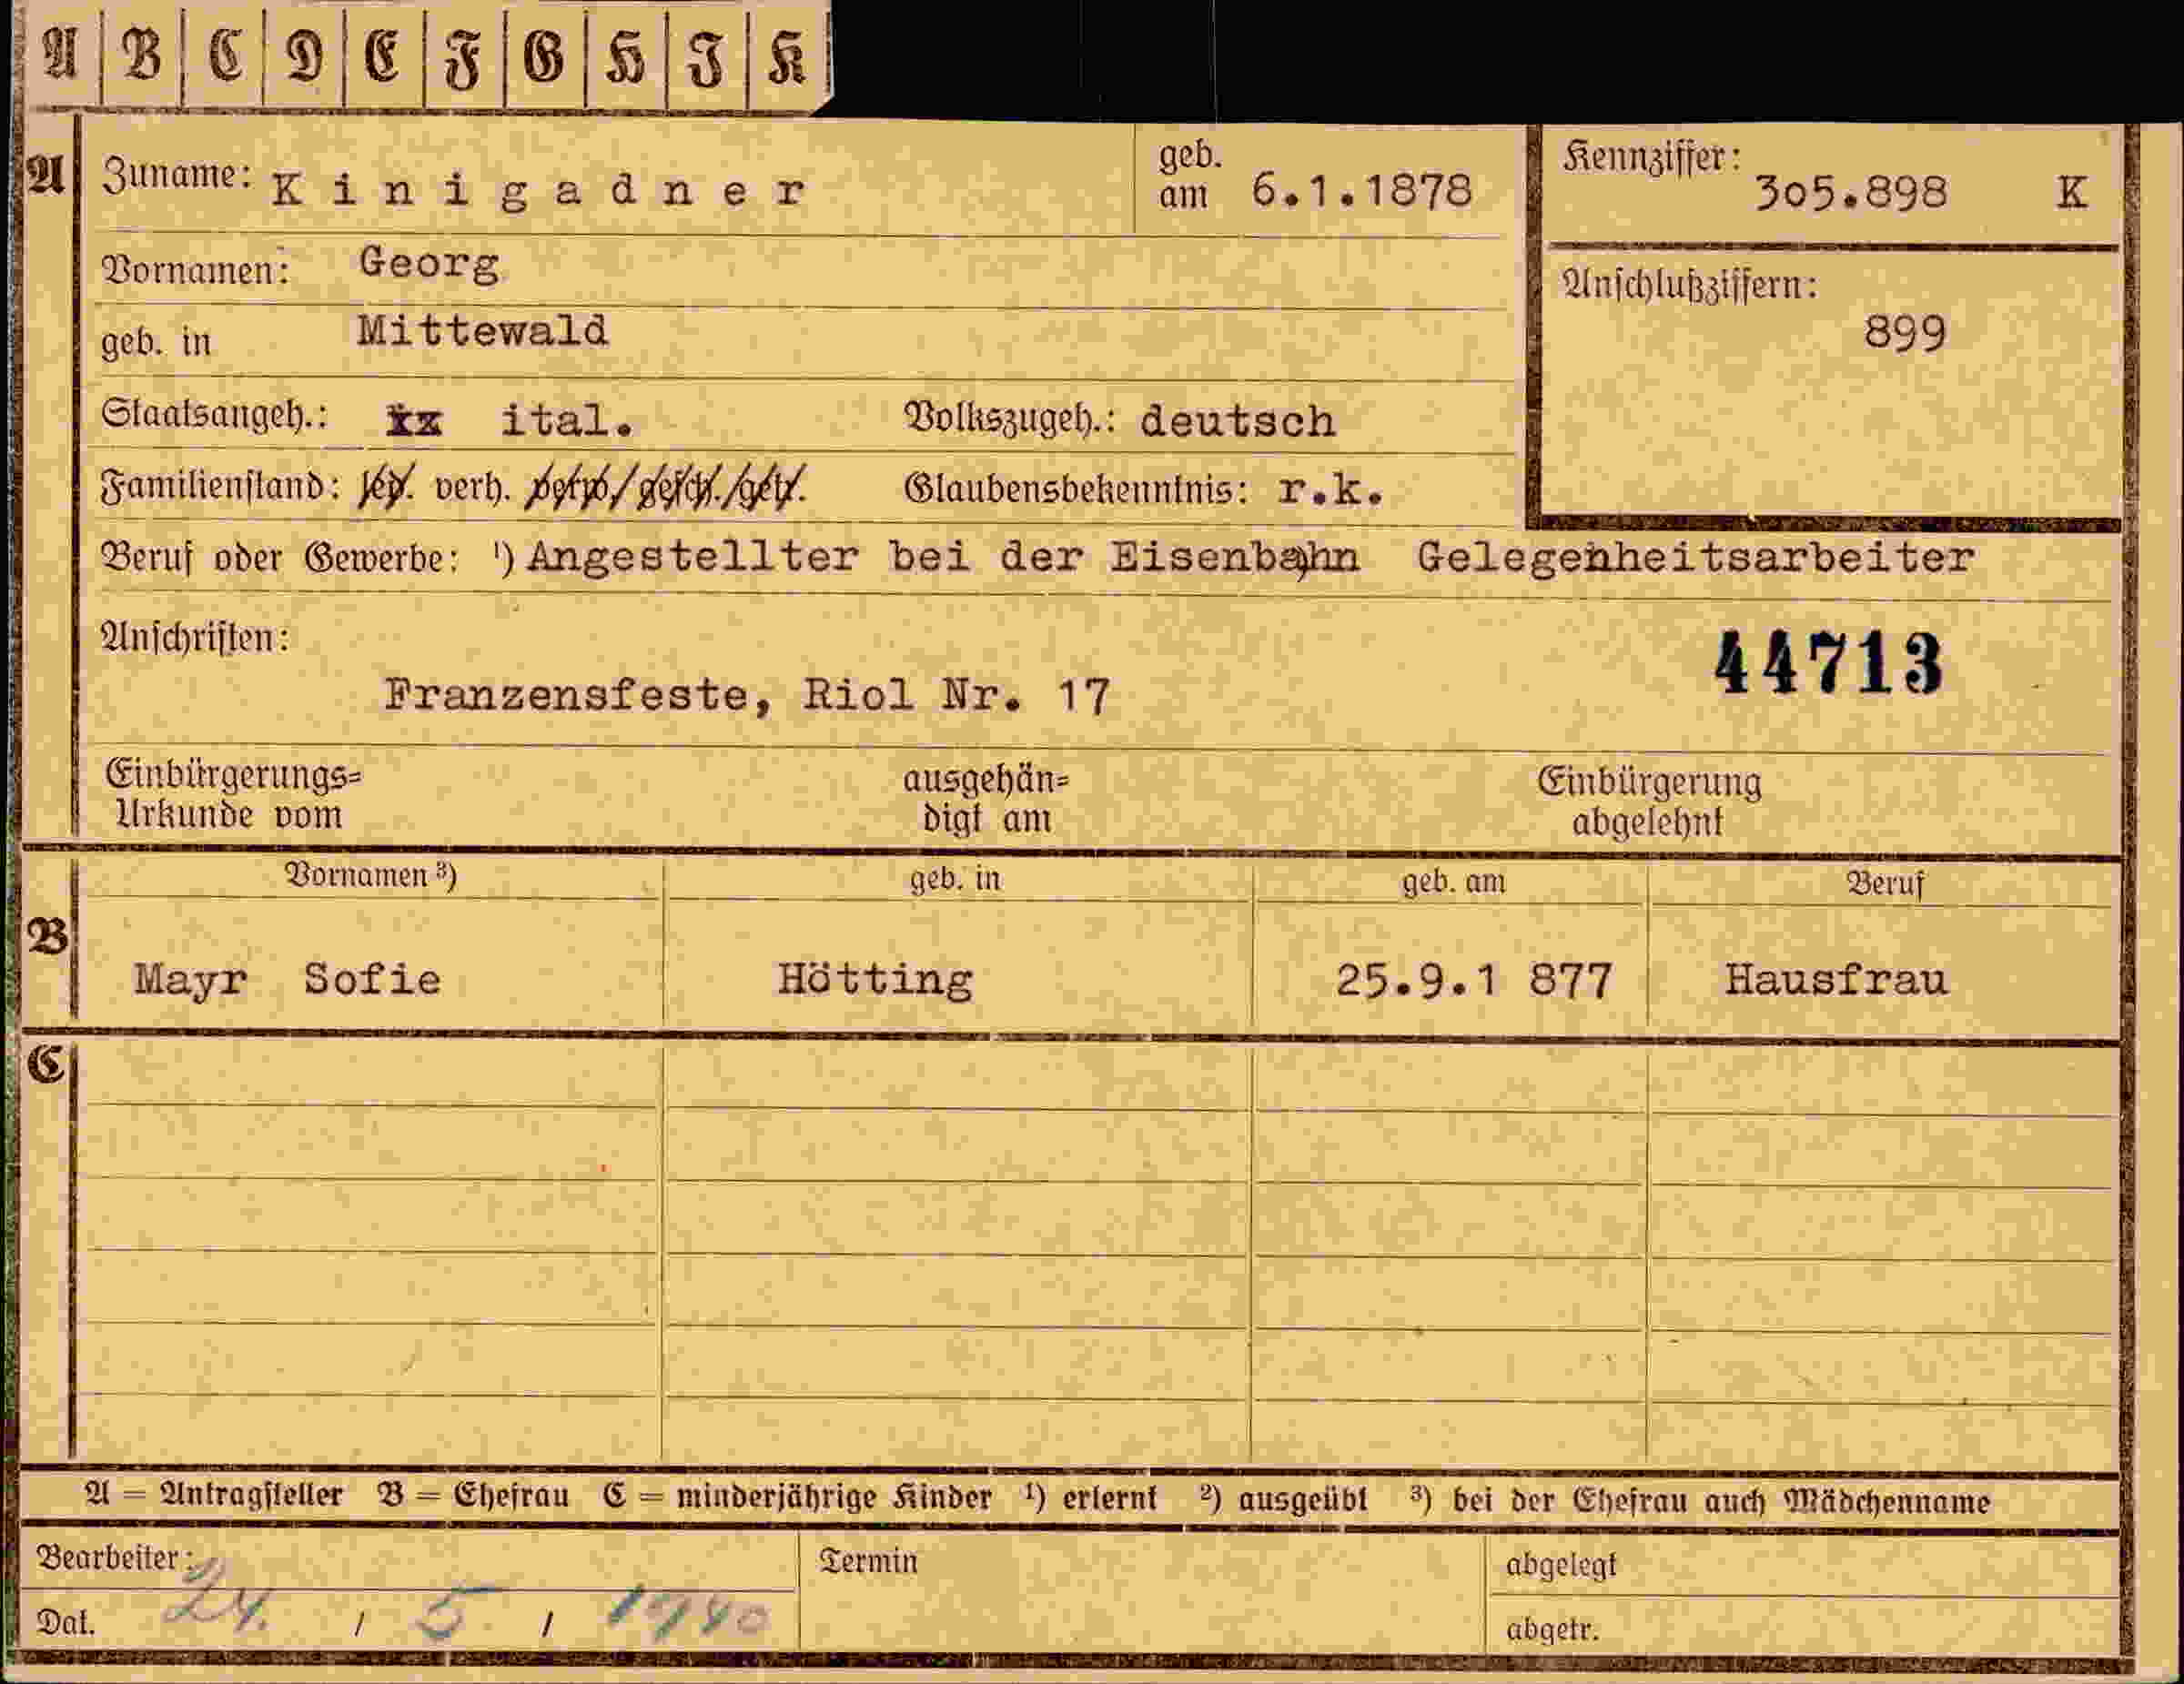 A B C D E F G H J K
A Zuname: Kinigadner geb. am 6.1.1878 Kennziffer: 305.898 K
Vornamen: Georg Anschlußziffern:
geb. in Mittewald 899
Staatsangeh.: xx ital. Volkszugeh.: deutsch
Familienstand: led. verh. verw./gesch./getr. Glaubensbekenntnis: r.k.
Beruf oder Gewerbe: ¹) Angestellter bei der Eisenbahn Gelegenheitsarbeiter
Anschriften: 44713
Franzensfeste, Riol Nr. 17
Einbürgerungs= ausgehän= Einbürgerung
Urkunde vom digt am abgelehnt
Vornamen ³) geb. in geb. am Beruf
B
Mayr Sofie Hötting 25.9.1 877 Hausfrau
C
A = Antragsteller B = Ehefrau C = minderjährige Kinder ¹) erlernt ²) ausgeübt ³) bei der Ehefrau auch Mädchenname
Bearbeiter: Termin abgelegt
Dat. 24. / 5 / 1940 abgetr.